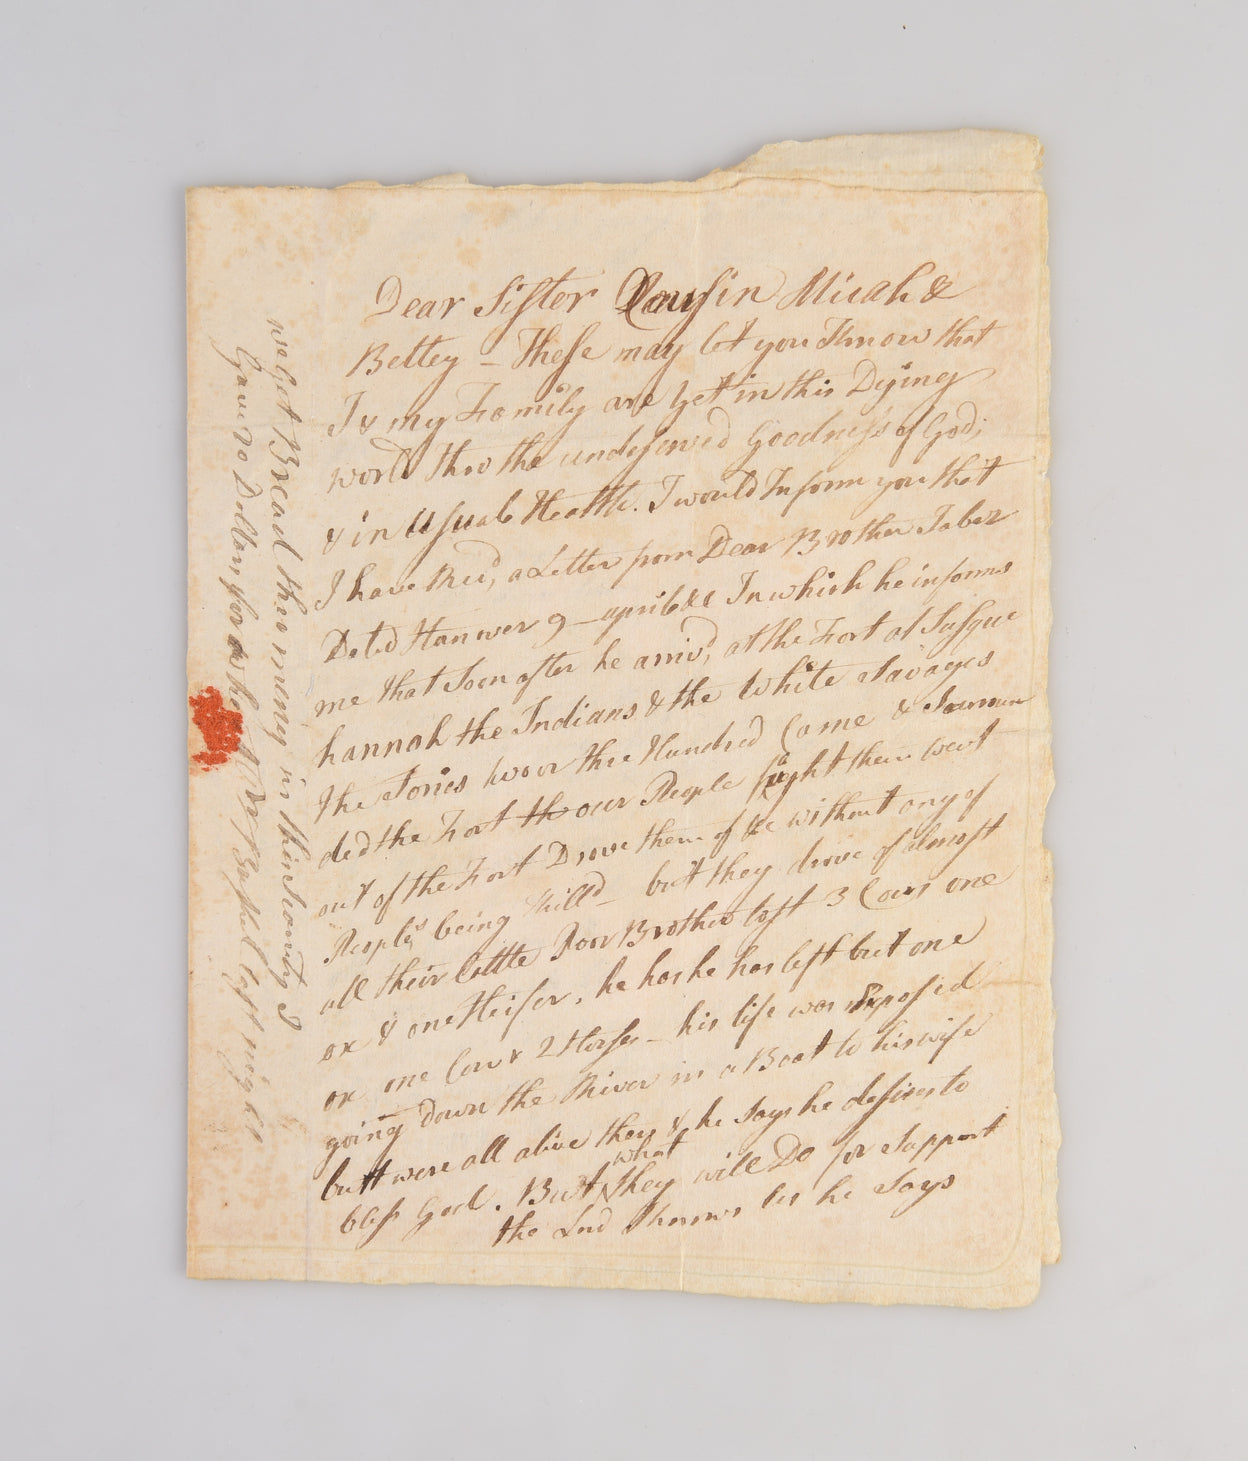 Dear Sister Cousin Micah &
Bettey – These may let you Know that
I & my Family are yet in this Dying
world thro the undeserved Goodness of God;
& in Usuale Health. I would Inform you that
I have Recd, a Letter from Dear Brother Jabez
Dated Hanover 9 – april &c In which he informs
me that Soon after he arrivd, at the Fort at Susque
hannah the Indians & the White Savages
the Tories three Hundred Came &
ded the Fort th our People fight them went
out of the Fort Drove them of &c without any of
People being killd – but they drove of almost
all their Cattle Poor Brother lost 3 Cows one
ox & one Heifer, he has he has left but one
ox one Cow & 2 Horses – his life was Exposed
going down the River in a Boat to his wife
butt were all alive they & he Says he desires to
bless God. But what they will Do for Support
the Lord Knows as he Says
we Get Bread thro mercy in this County I
Gave 20 Dollars for a last night